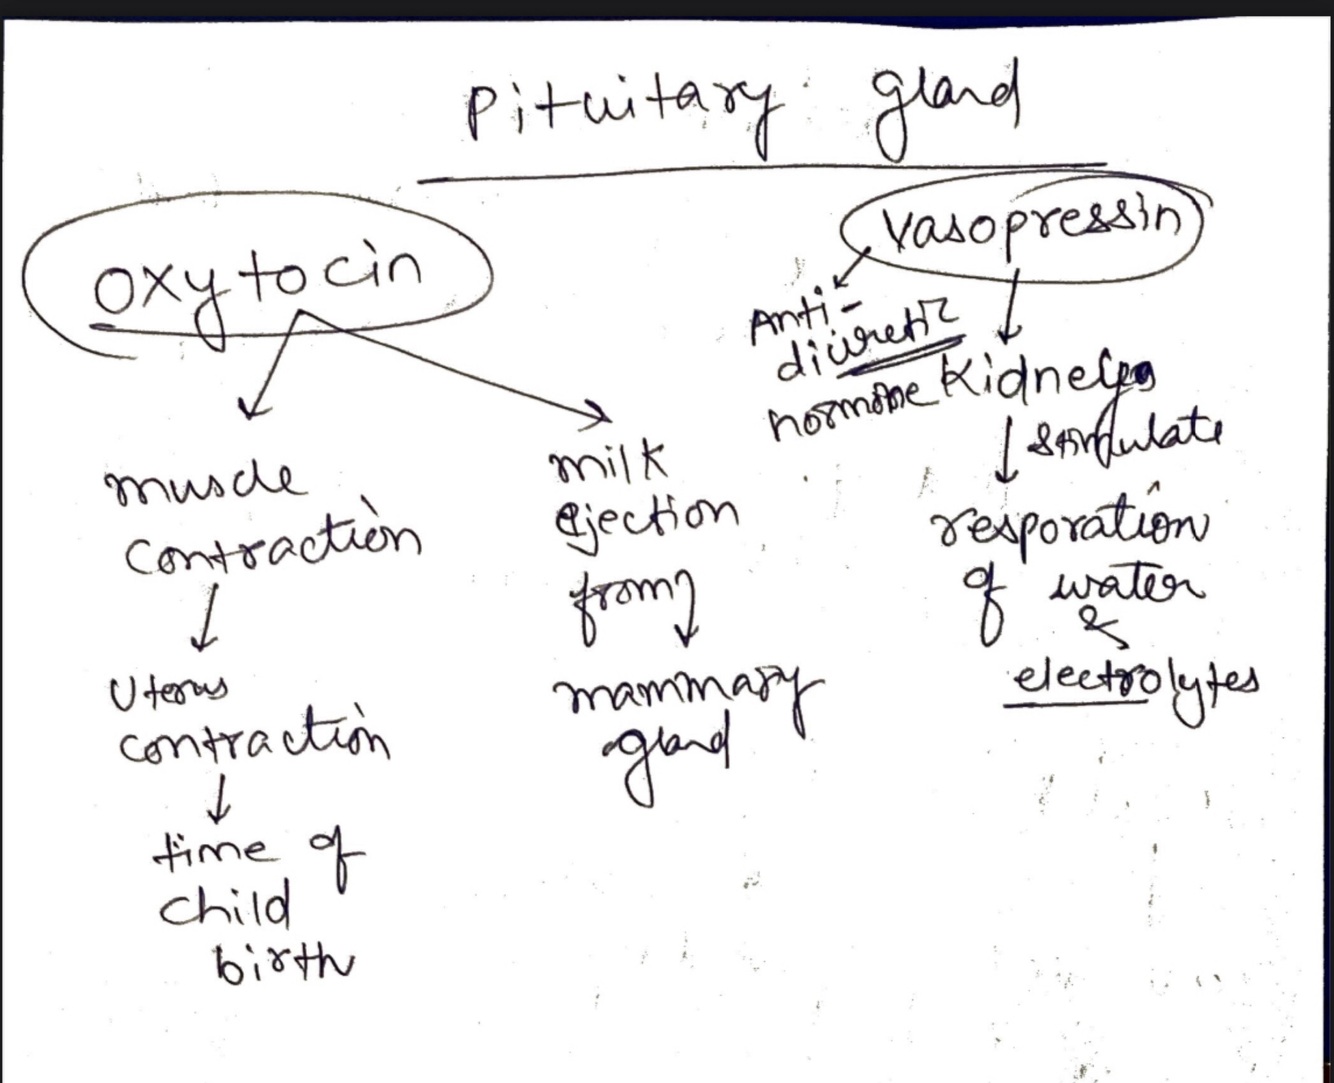 Pituitary gland
oxytocin
muscle
contraction
Uterus
contraction
time of
child
birth
milk
ejection
from
mammary
gland
Vasopressin
Anti-
diuretic
hormone
Kidneys
stimulate
resporation
of water
&
electrolytes